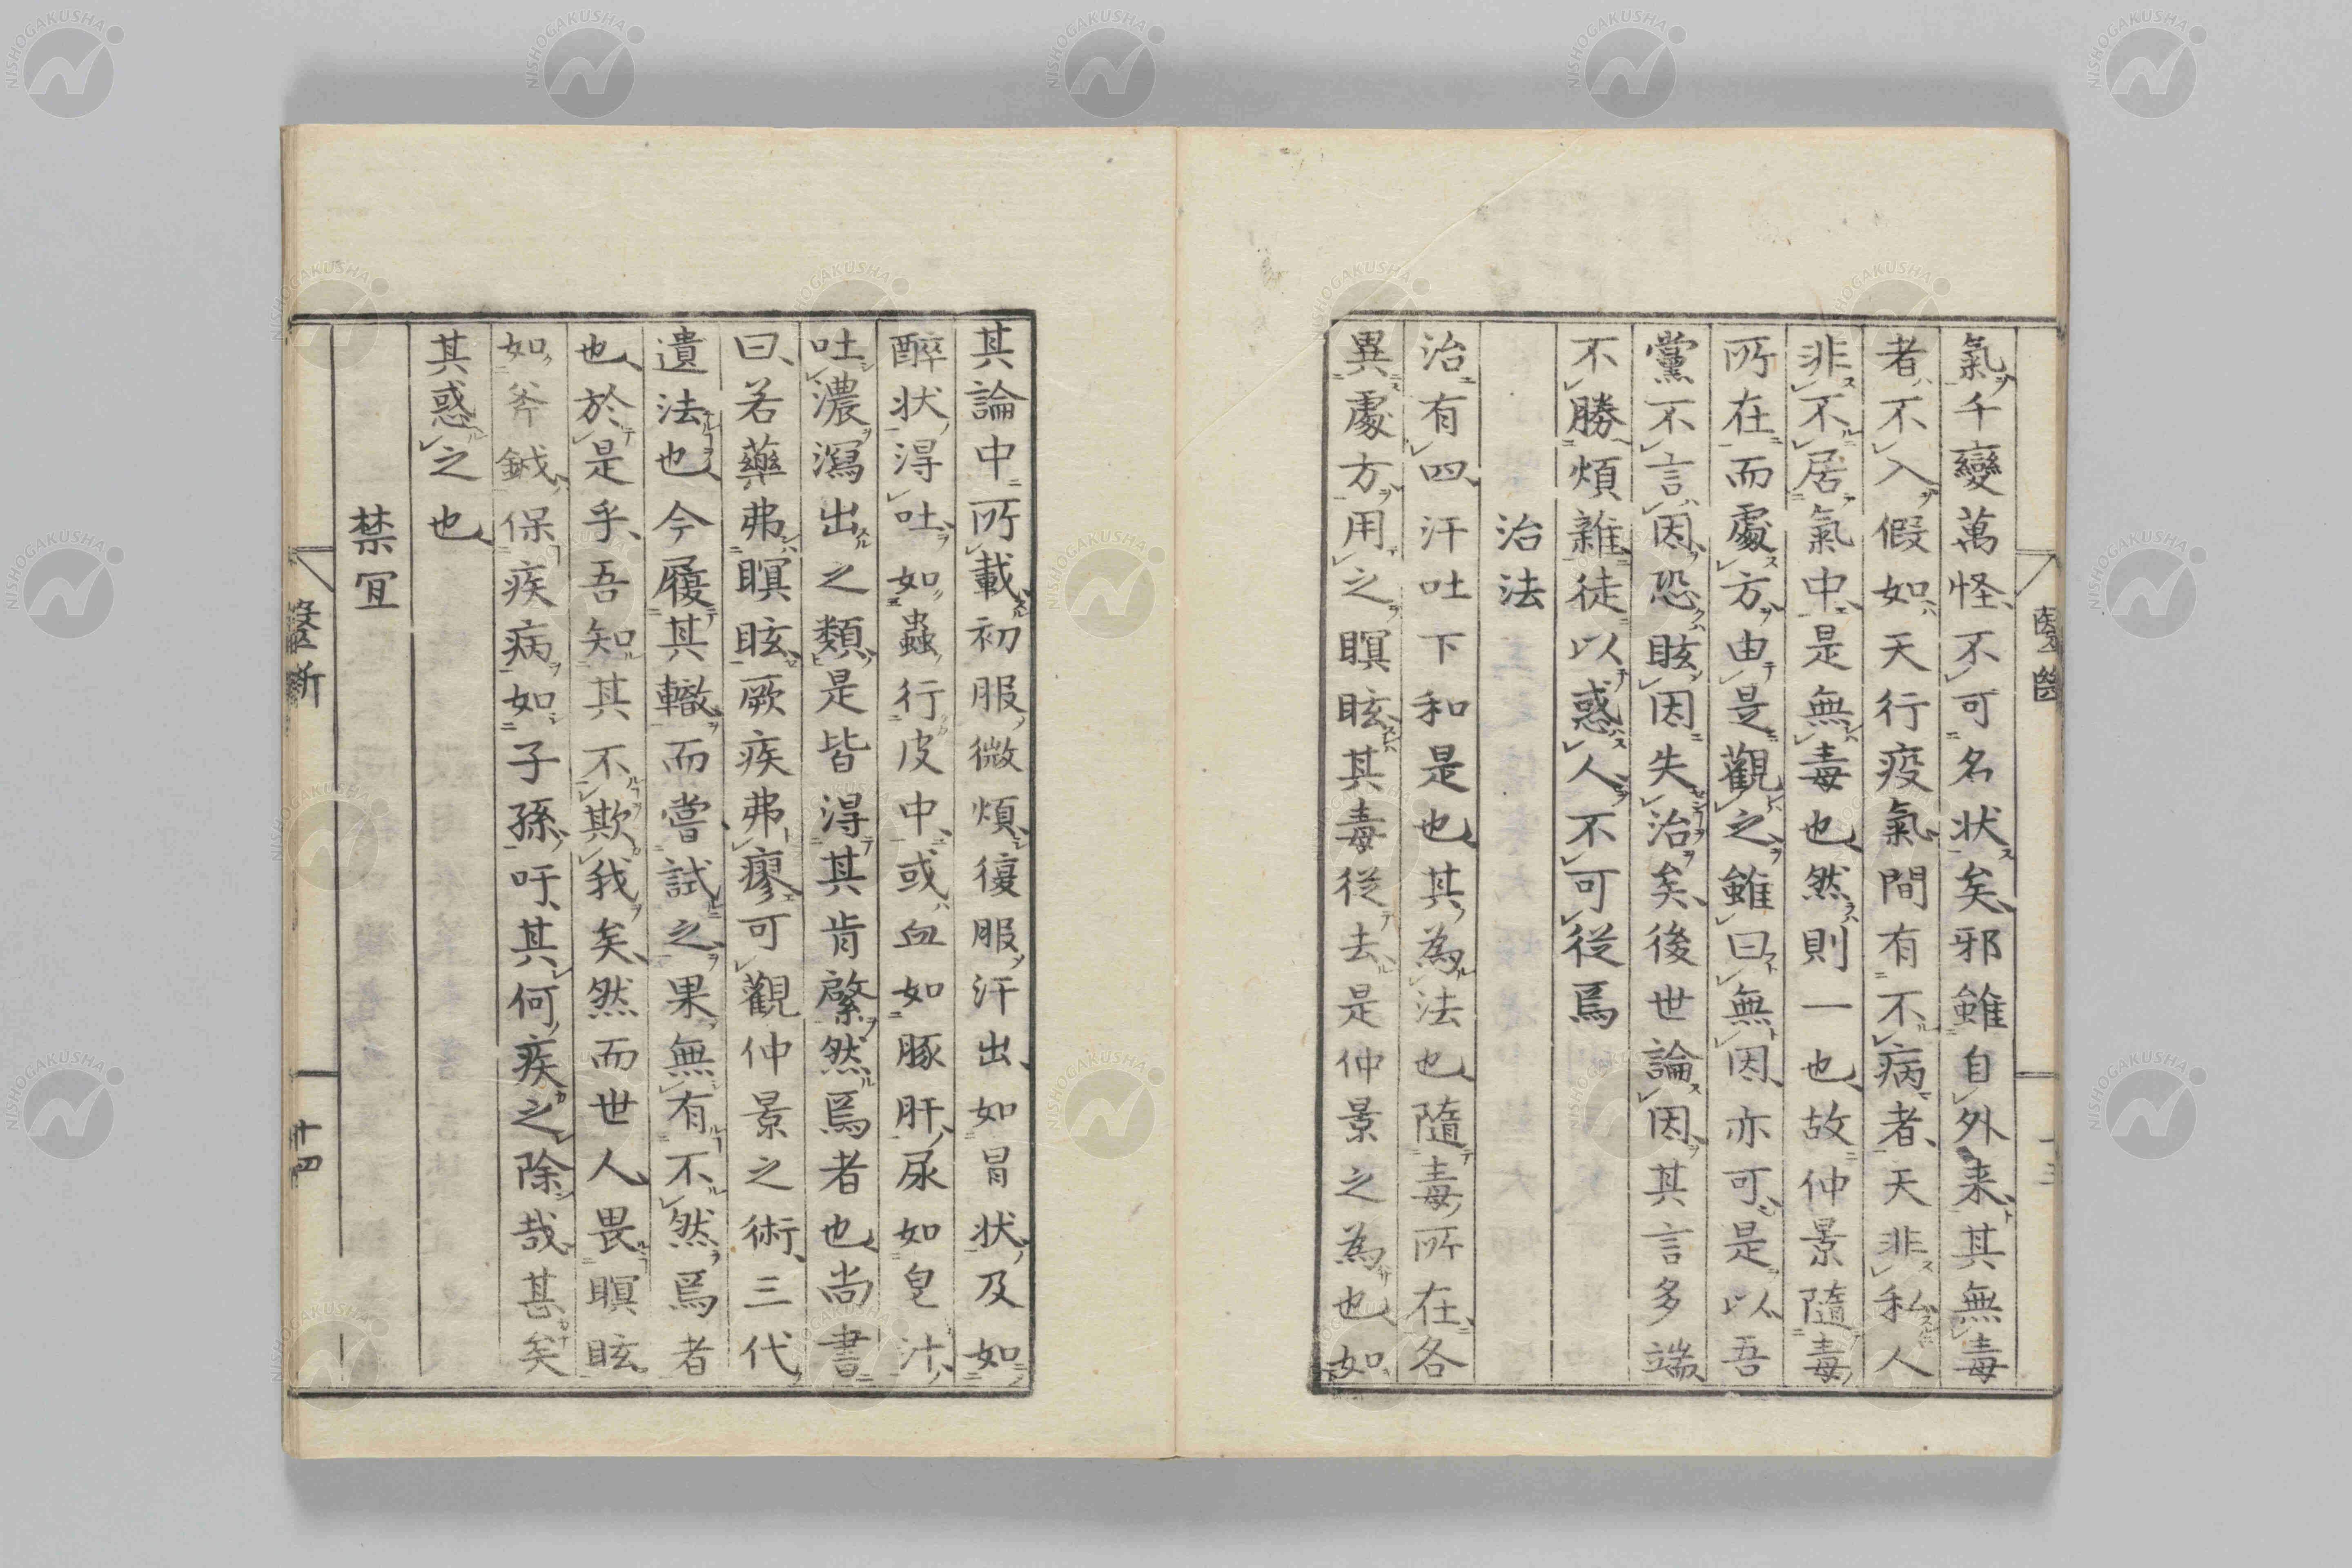 氣千變萬怪不可名状矣邪雖自外来其無毒
者不入假如天行疫氣間有不病者天非私人
非不居氣中是無毒也然則一也故仲景隨毒
所在而處方由是觀之雖曰無因亦可是以吾
黨不言因恐眩因失治矣後世論因其言多端
不勝煩雜徒以惑人不可從焉
治法
治有四汗吐下和是也其為法也隨毒所在各
異處方用之瞑眩其毒從去是仲景之為也如
其論中所載初服微煩復服汗出如冒状及如
醉状得吐如蟲行皮中或血如豚肝尿如皂汁
吐濃瀉出之類是皆得其肯綮然焉者也尚書
曰若藥弗瞑眩厥疾弗瘳可觀仲景之術三代
遺法也今履其轍而嘗試之果無有不然焉者
也於是乎吾知其不欺我矣然而世人畏瞑眩
如斧鉞保疾病如子孫吁其何疾之除哉甚矣
其惑之也
禁宜
醫斷
十四
NISHOGAKUSHA